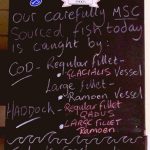 Our carefully MSC
Sourced fish today
is caught by:
COD - Regular fillet-
GLACIALIS Vessel
Large fillet -
Ramoen Vessel
HADDOCK - Regular fillet
GADUS
LARGE fillet
Ramoen